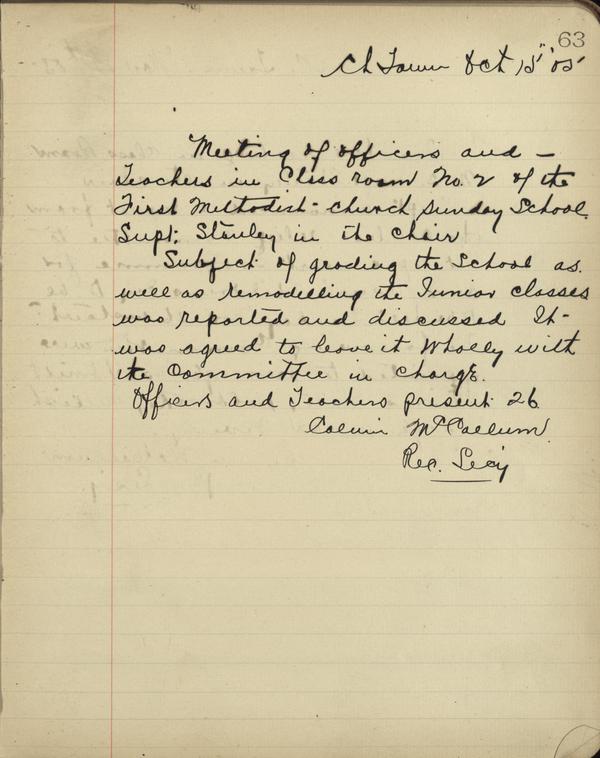 63
Ch Town Oct 15" '05
Meeting of officers and -
Teachers in Class room No. 2 of the
First Methodist church Sunday School.
Supt; Stanley in the Chair
Subject of grading the School as
well as remodelling the Junior classes
was reported and discussed It
was agreed to leave it Wholly with
the Committee in charge.
Officers and Teachers present 26
Calvin McCallum
Rec. Secy